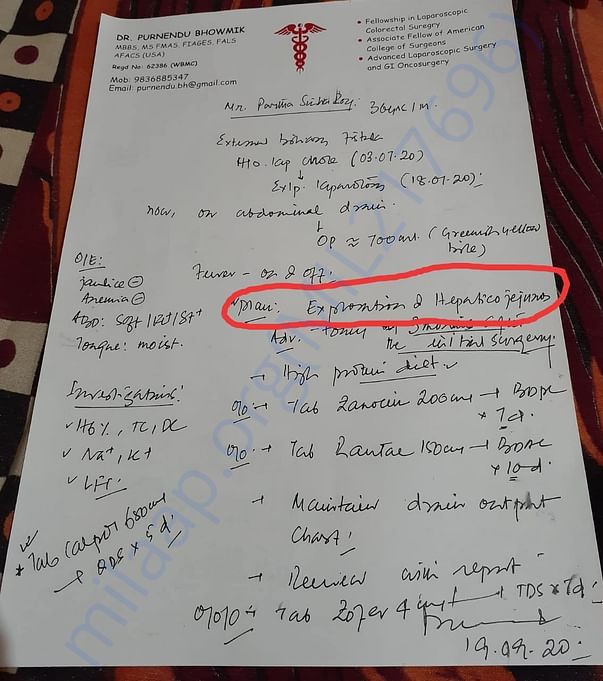 DR. PURNENDU BHOWMIK
MBBS, MS FMAS, FIAGES, FALS
AFACS (USA)
Regd No: 62386 (WBMC)
Mob: 9836885347
Email: purnendu.bh@gmail.com
• Fellowship in Laparoscopic
Colorectal Suregry
• Associate Fellow of American
College of Surgeons
• Advanced Laparoscopic Surgery
and GI Oncosurgery
Mr. Partha
External biliary Fistula
H/o. lap chole (03.07.20)
↓
Exlp. laparotomy (18.07.20)
now, on abdominal drain.
↓
OP ≈ 700ml. (Greenish yellow
bile)
Fever - on & off.
O/E:
Jaundice ⊖
Anemia ⊖
Abdo: Soft
Tongue: moist.
Plan: Exploration & Hepatico jejunos
Adv.
the initial surgery.
→ High protein diet.
Investigations:
✓ Hb%, TC, DC
✓ Na+, K+
✓ LFT
Tab Zanocin 200mg → BDPC
x 7d.
Tab Rantac 150mg → BDAC
x 10d.
→ Maintain drain output
Chart
* Tab Calpol 650mg
x 5d.
→ Review with report
Tab Zofer 4mg → TDS x 7d
19.09.20
milaap.org